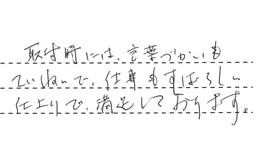 取付時には、言葉づかいも
ていねいで、仕事もすばらしい
仕上りで、満足しております。